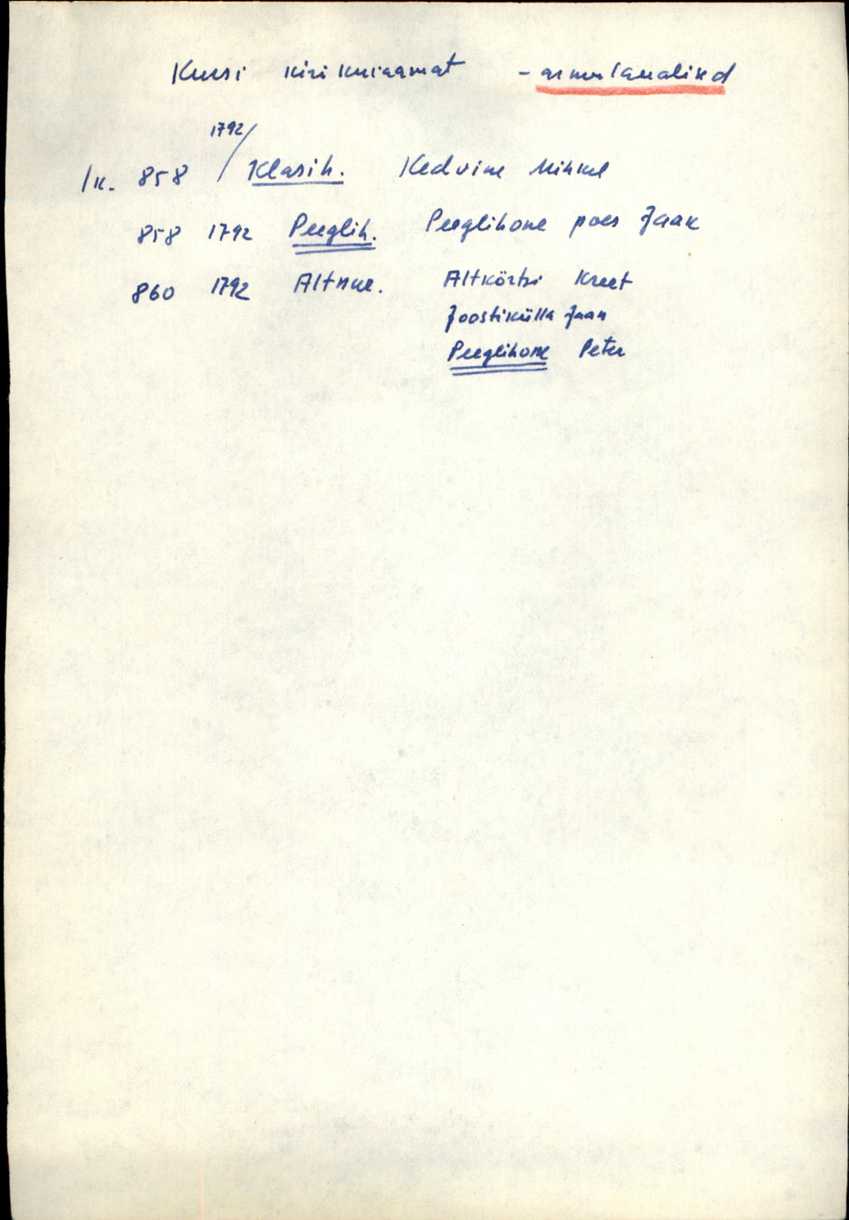 Kursi kirikuraamat - armulaualised
1792/
lk. 858 Klasih. Kedvine Mihkel
858 1792 Peeglih. Peeglihone poes Jaak
860 1792 Altnue. Altkörtsi Kreet
Joostikülla Jaan
Peeglihone Peter